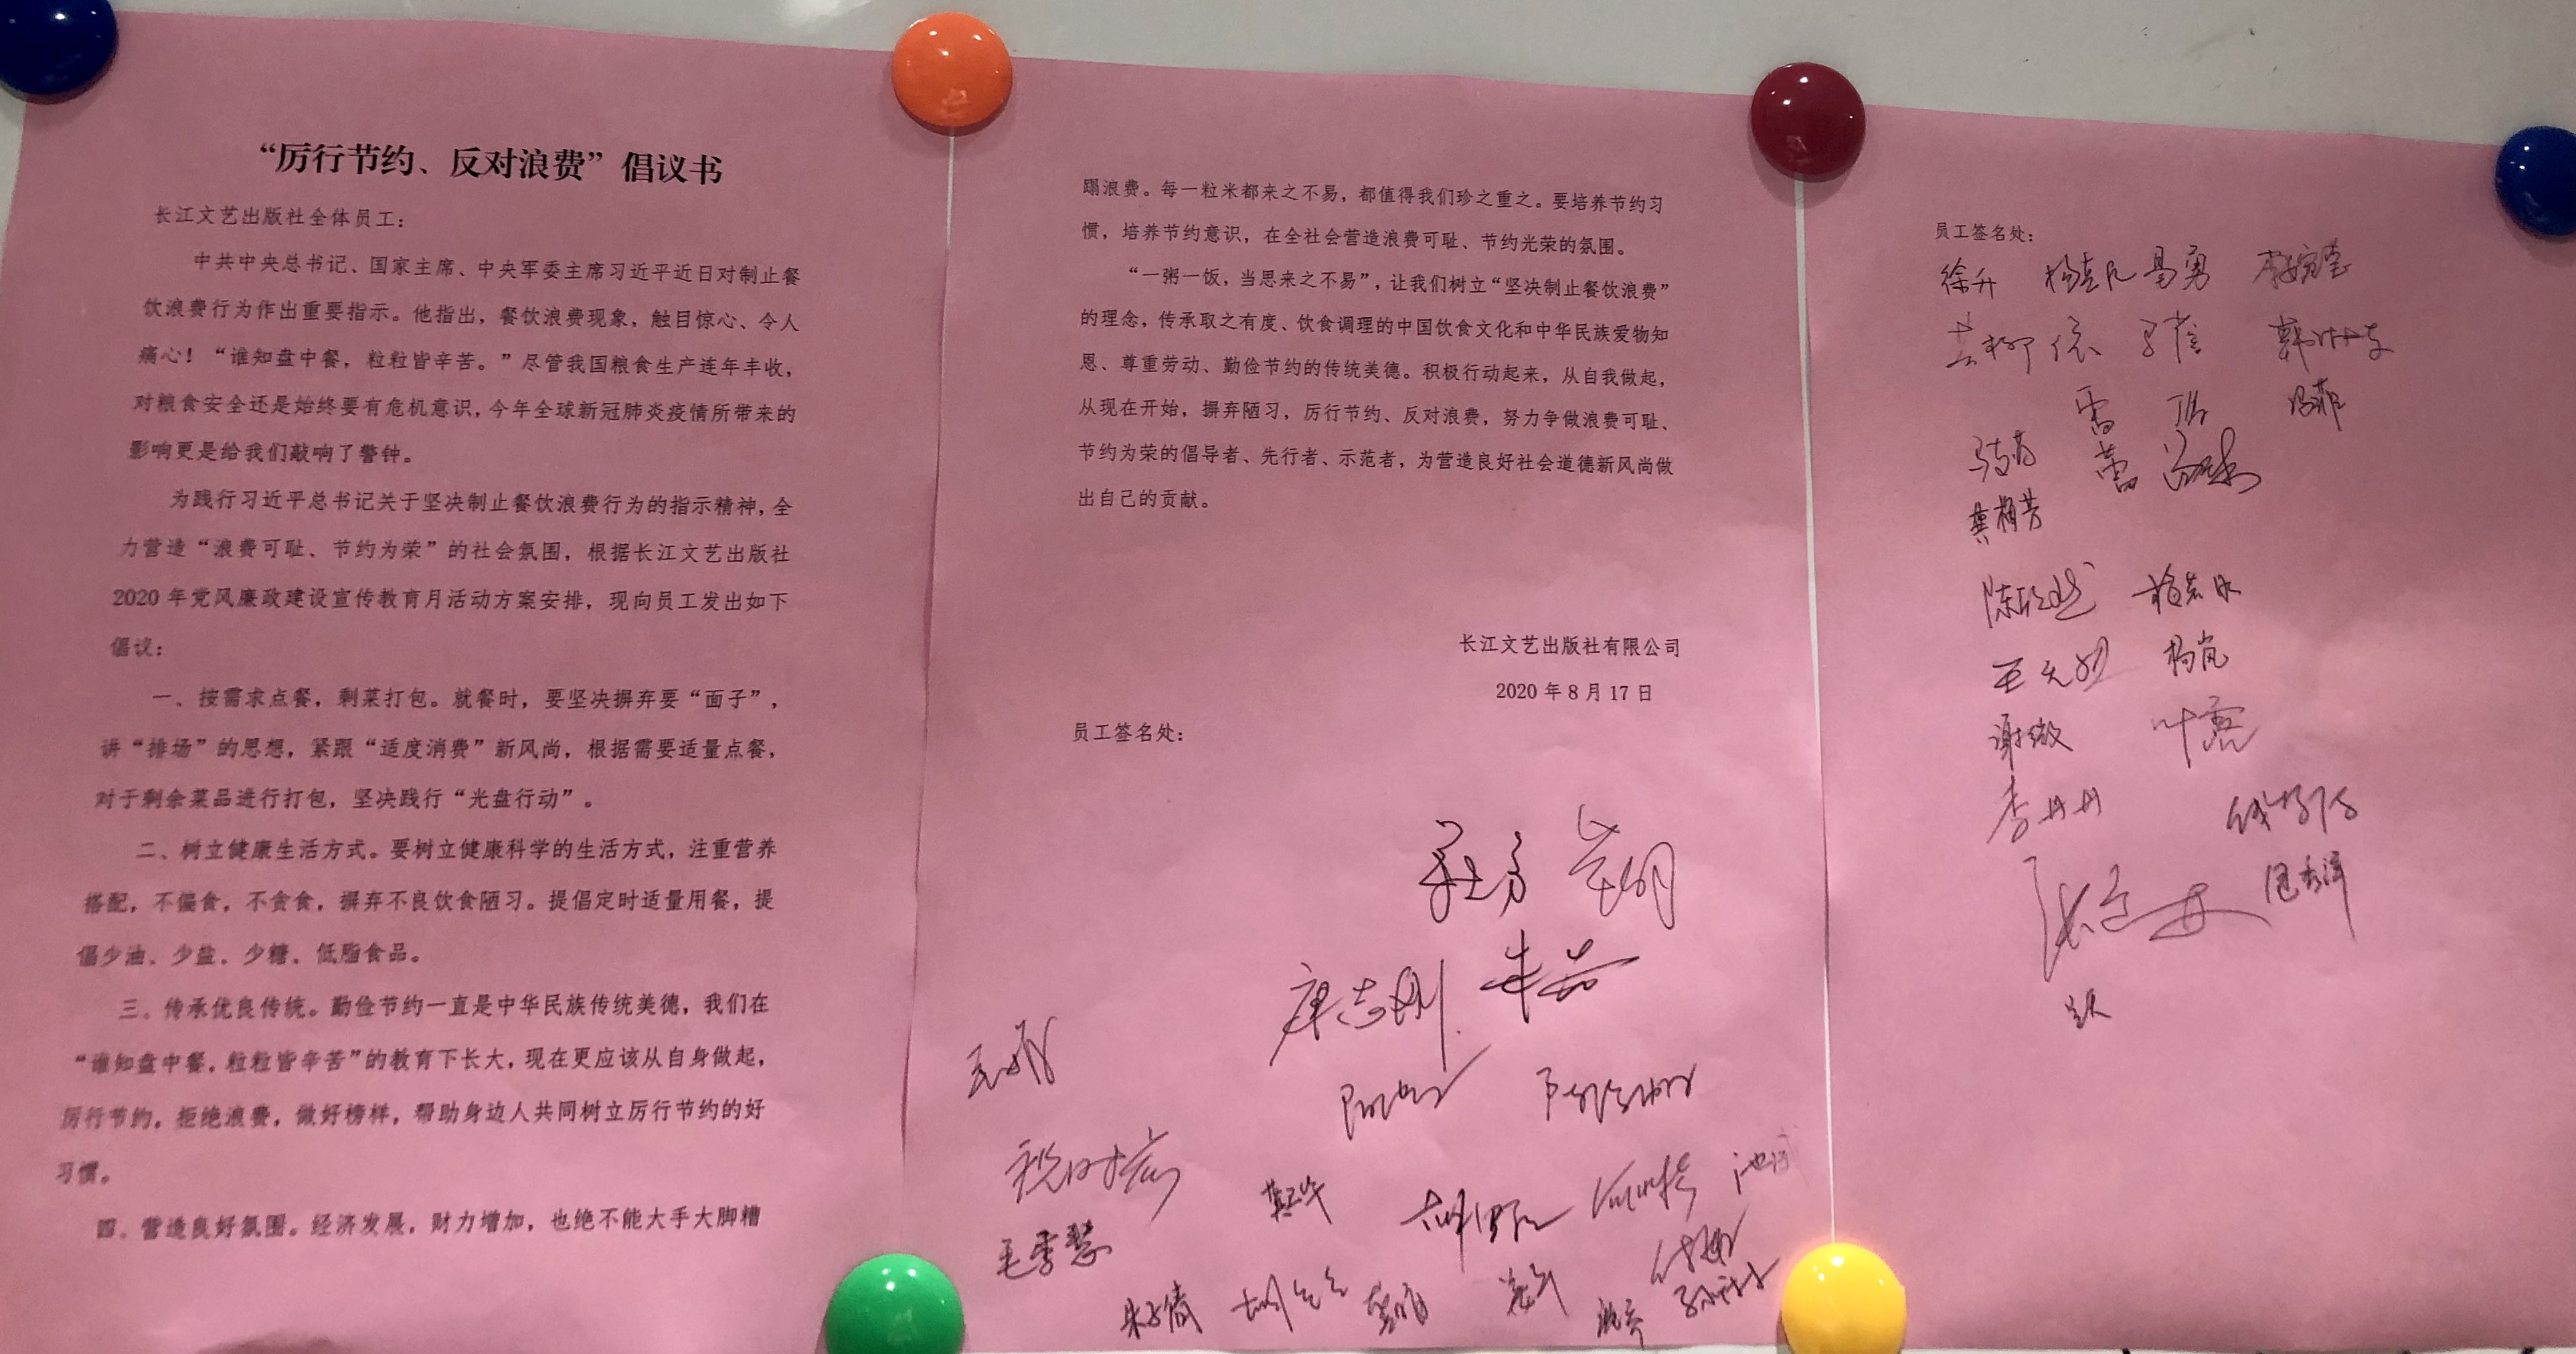 “厉行节约、反对浪费”倡议书
长江文艺出版社全体员工：
中共中央总书记、国家主席、中央军委主席习近平近日对制止餐
饮浪费行为作出重要指示。他指出，餐饮浪费现象，触目惊心、令人
痛心！“谁知盘中餐，粒粒皆辛苦。”尽管我国粮食生产连年丰收，
对粮食安全还是始终要有危机意识，今年全球新冠肺炎疫情所带来的
影响更是给我们敲响了警钟。
为践行习近平总书记关于坚决制止餐饮浪费行为的指示精神，全
力营造“浪费可耻、节约为荣”的社会氛围，根据长江文艺出版社
2020年党风廉政建设宣传教育月活动方案安排，现向员工发出如下
倡议：
一、按需求点餐，剩菜打包。就餐时，要坚决摒弃要“面子”，
讲“排场”的思想，紧跟“适度消费”新风尚，根据需要适量点餐，
对于剩余菜品进行打包，坚决践行“光盘行动”。
二、树立健康生活方式。要树立健康科学的生活方式，注重营养
搭配，不偏食，不贪食，摒弃不良饮食陋习。提倡定时适量用餐，提
倡少油、少盐、少糖、低脂食品。
三、传承优良传统。勤俭节约一直是中华民族传统美德，我们在
“谁知盘中餐，粒粒皆辛苦”的教育下长大，现在更应该从自身做起，
厉行节约，拒绝浪费，做好榜样，帮助身边人共同树立厉行节约的好
习惯。
四、营造良好氛围。经济发展，财力增加，也绝不能大手大脚糟
蹋浪费。每一粒米都来之不易，都值得我们珍之重之。要培养节约习
惯，培养节约意识，在全社会营造浪费可耻、节约光荣的氛围。
“一粥一饭，当思来之不易”，让我们树立“坚决制止餐饮浪费”
的理念，传承取之有度、饮食调理的中国饮食文化和中华民族爱物知
恩、尊重劳动、勤俭节约的传统美德。积极行动起来，从自我做起，
从现在开始，摒弃陋习，厉行节约、反对浪费，努力争做浪费可耻、
节约为荣的倡导者、先行者、示范者，为营造良好社会道德新风尚做
出自己的贡献。
长江文艺出版社有限公司
2020年8月17日
员工签名处：
康志刚
毛季慧
员工签名处：
徐升
龚梅芳
杨岚
谢微 叶露
李丹丹